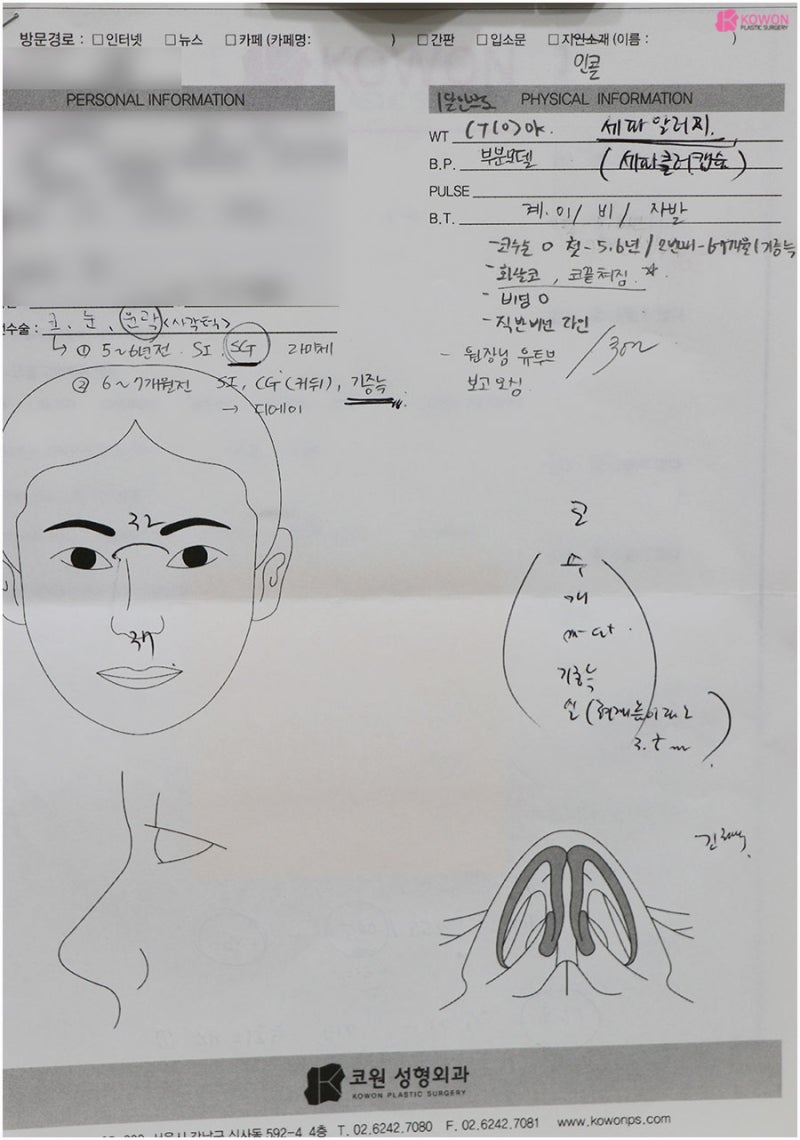 KOWON
PLASTIC SURGERY
방문경로 : □인터넷 □뉴스 □카페 (카페명: ) □간판 □입소문 □지인소개 (이름 : )
인콜
PERSONAL INFORMATION
PHYSICAL INFORMATION
WT 세파알러지.
B.P. 부분모델 (세파클러캡슐)
PULSE
B.T. 계.이/ 비/ 자발
-코수술 O 첫-5.6년/2번째-6개월(기증늑
-화살코, 코끝처짐.
-비딩 O
-직반버선 라인
- 원장님 유투브
보고 오심.
수술 : 코, 눈, 윤곽 <사각턱>
① 5~6년전. SI. SG
② 6~7개월전 SI, CG(귀뒤), 기증늑
→ 디에이
코
수
개
기증늑
코원 성형외과
KOWON PLASTIC SURGERY
서울시 강남구 신사동 592-4 4층 T. 02.6242.7080 F. 02.6242.7081 www.kowonps.com